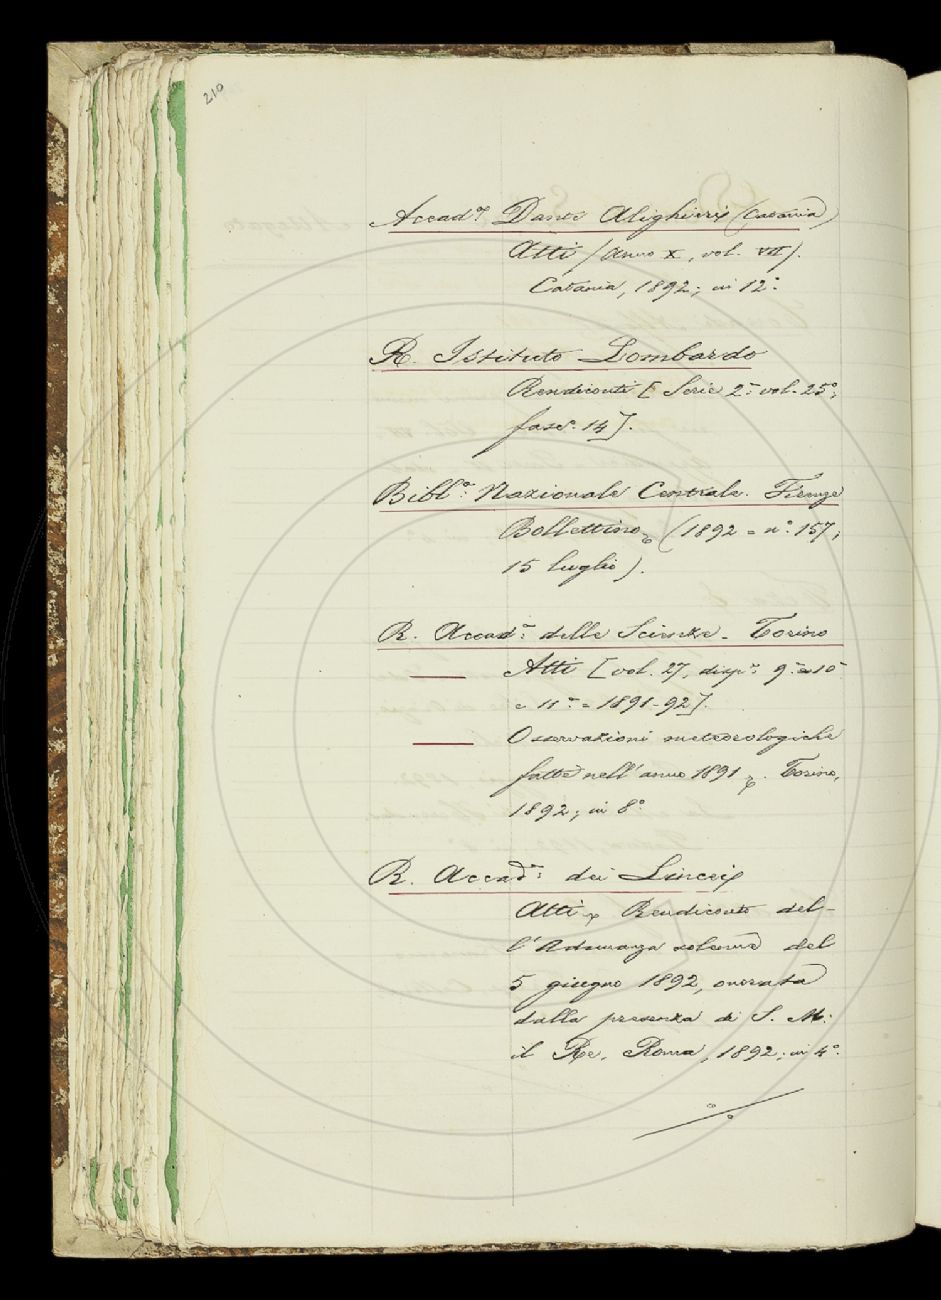 219
Accad.ª Dante Alighieri (Catania)
Atti (Anno X, vol. VII).
Catania, 1892; in 12.°
R. Istituto Lombardo
Rendiconti [Serie 2.ª vol. 25.°,
fasc.° 14].
Bibl.ª Nazionale Centrale. Firenze
Bollettino (1892 = n.° 157;
15 luglio).
R. Accad.ª delle Scienze - Torino
Atti [vol. 27, disp.ª 9.ª 10.ª
e 11.ª = 1891-92].
Osservazioni meteorologiche
fatte nell'anno 1891. Torino,
1892; in 8.°
R. Accad.ª dei Lincei
Atti Rendiconto del-
l'Adunanza solenne del
5 giugno 1892, onorata
dalla presenza di S. M.
il Re. Roma, 1892; in 4.°